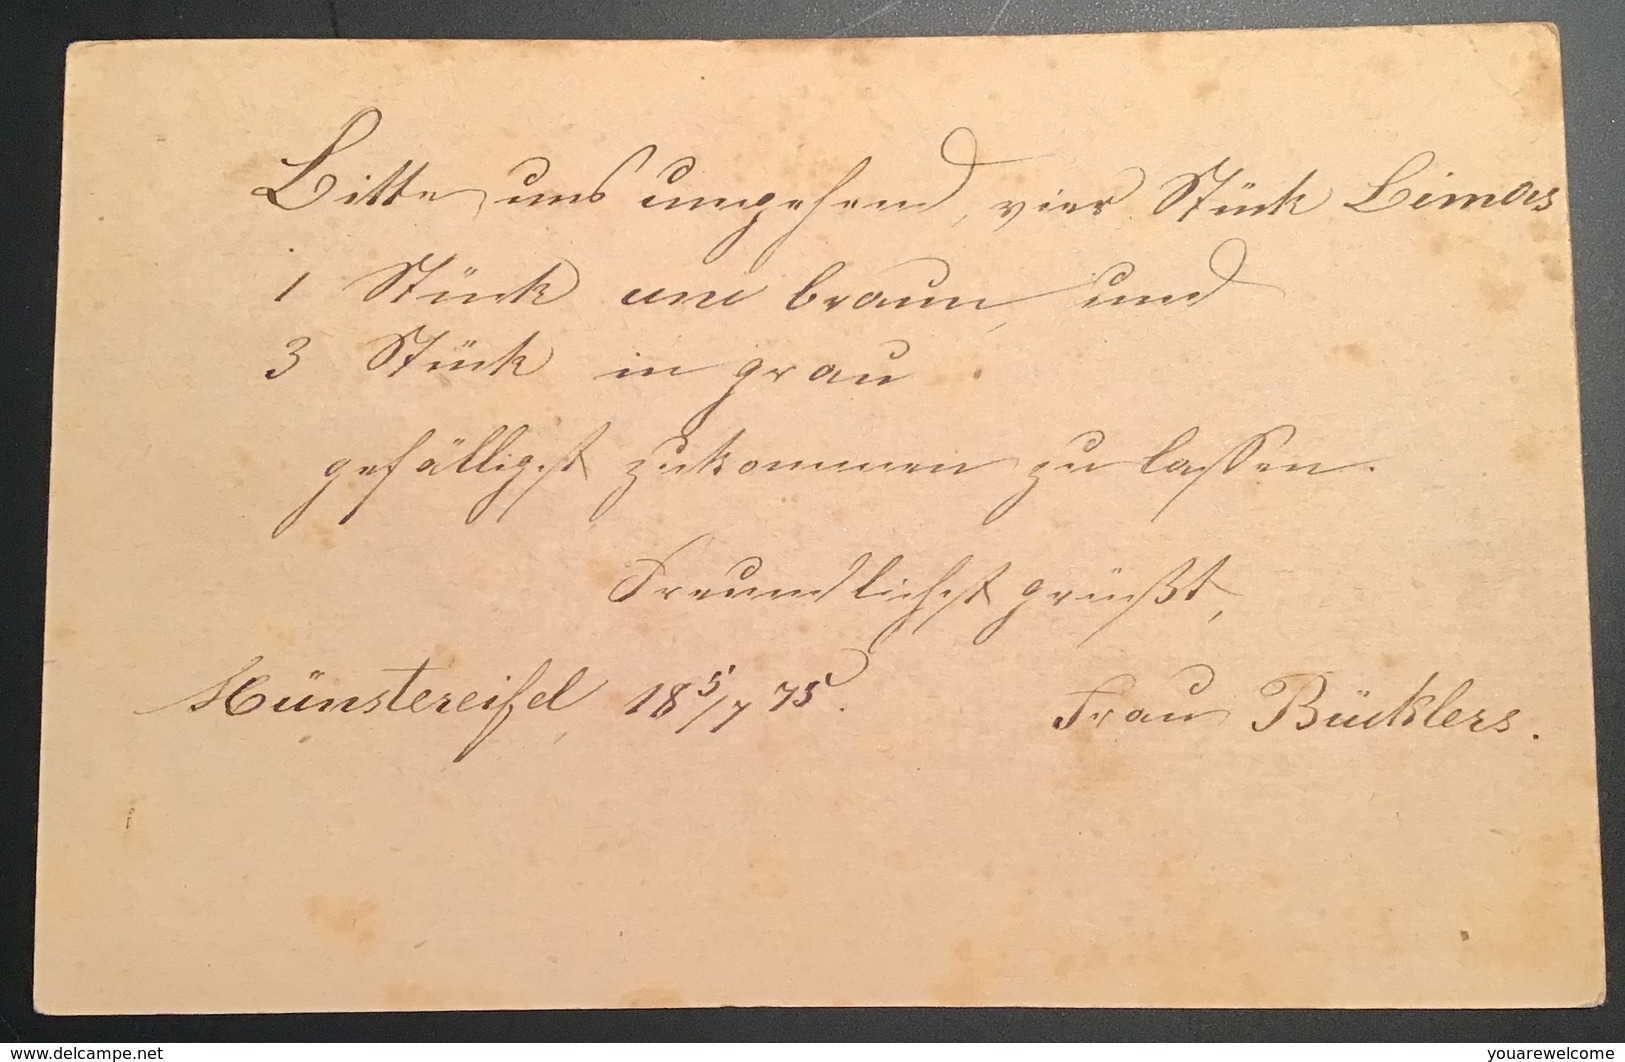 Bitte uns umgehend, vier Stück Limas
1 Stück uni braun, und
3 Stück in grau
gefälligst zukommen zu lassen.
Freundlichst grüßt,
Münstereifel, 18 5/7 75. Frau Bücklers.
www.delcampe.net
youarewelcome